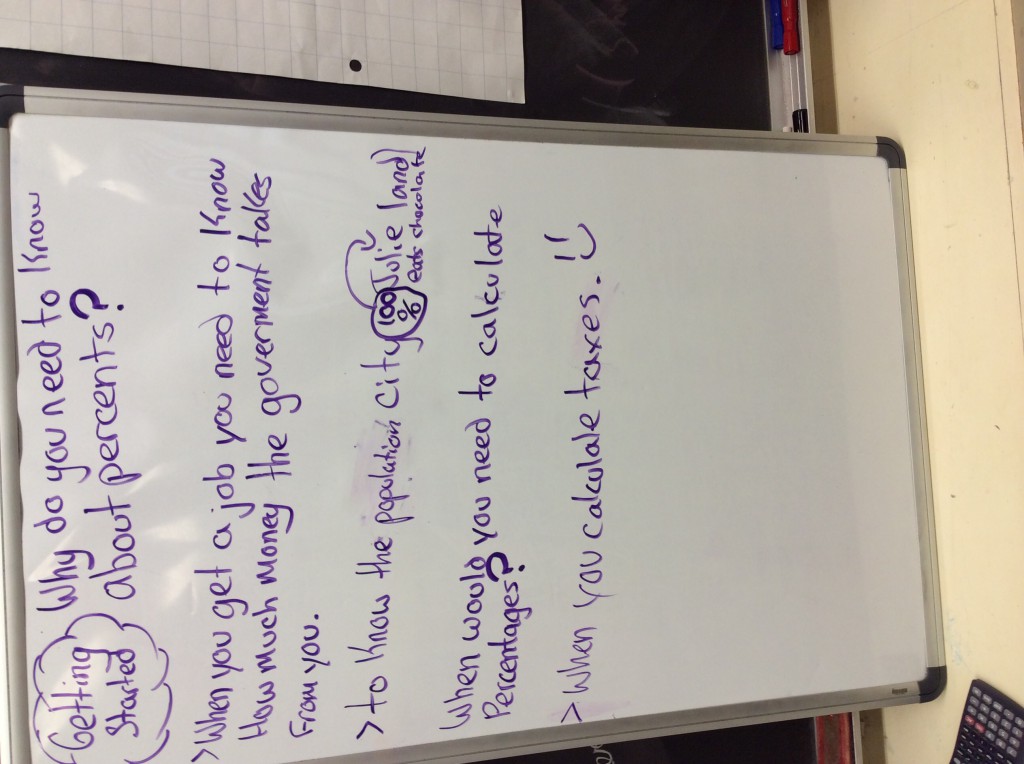 Getting Started
Why do you need to know
about percents?
>When you get a job you need to know
How much money the goverment takes
From you.
>to know the population city (100% Julie land)
eats chocolate
When would you need to calculate
Percentages?
>When you calculate taxes.